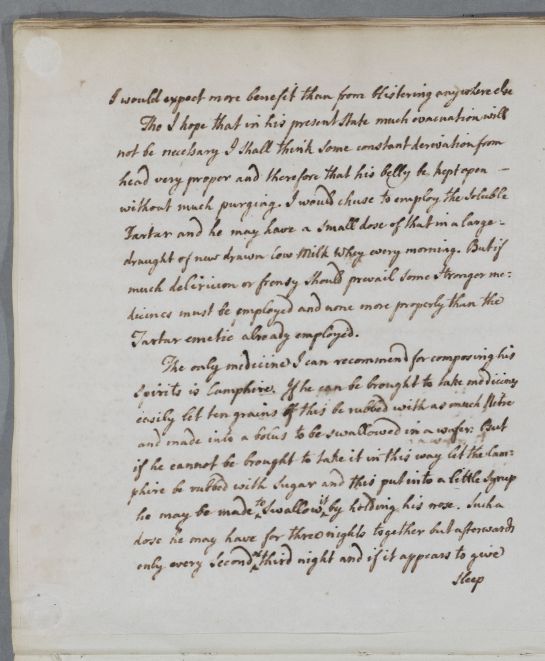 I would expect more benefit than from blistering anywhere else
Tho I hope that in his present State much evacuation will
not be necessary I shall think some constant derivation from
head very proper and therefore that his belly be kept open —
without much purging. I would chuse to employ the Soluble
Tartar and he may have a small dose of that in a large
draught of new drawn Cow Milk Whey every morning. But if
much delirium or frensy should prevail some stronger me:
dicines must be employed and none more properly than the
Tartar emetic already employed.
The only medicine I can recommend for composing his
Spirits is Camphire. If he can be brought to take medicines
easily let ten grains of this be rubbed with as much Nitre
and made into a bolus to be swallowed in a wafer: But
if he cannot be brought to take it in this way let the Cam:
phire be rubbed with Sugar and this put into a little Syrup
he may be made to swallow it by holding his nose. Such a
dose he may have for three nights together but afterwards
only every Second or third night and if it appears to give
Sleep